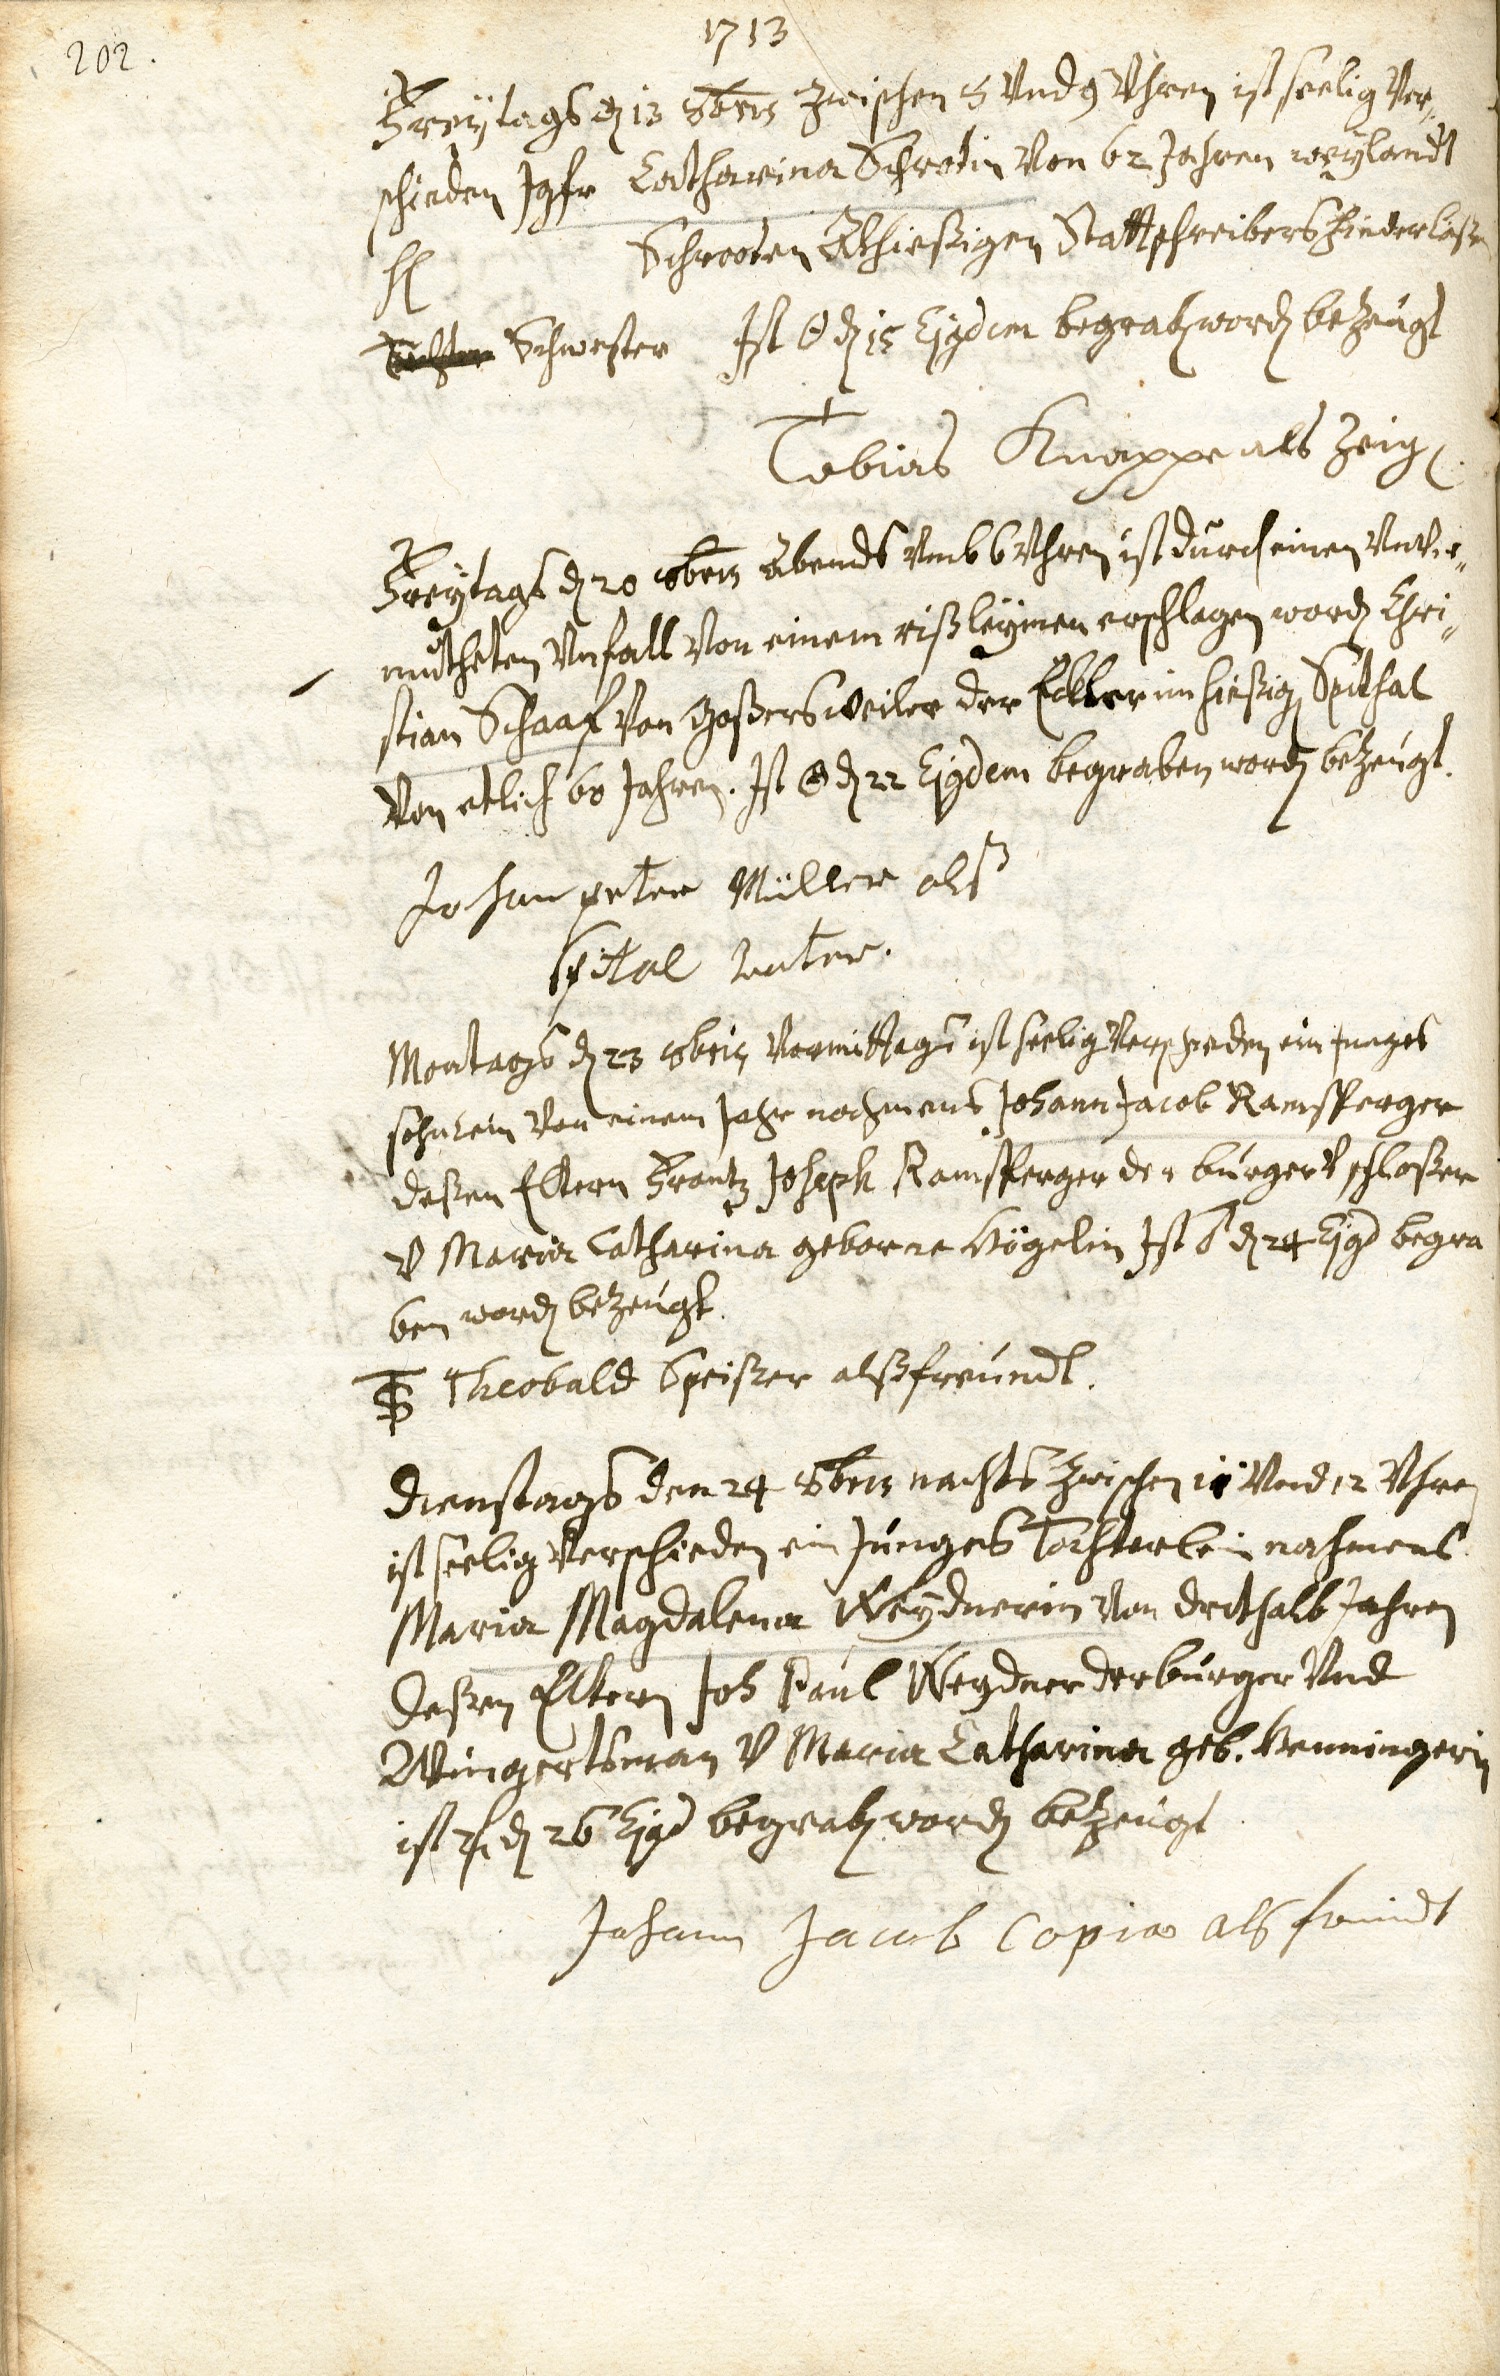 1713
202.
Freytags dn 13 8bris zwischen 8 Vnd 9 Vhren ist seelig Ver-
schieden Jgfr Catharina Schrotin Von 62 Jahren weylandt
H Schrooten Althießigen Stattschreibers hinderlaßen
Schwester Ist ☉ dn 15 Ejusdem begrabn wordn bezeugt
Tobias Knappe als Zeug
Freytags dn 20 8bris Abends Vmb 6 Vhren ist durch einen Vnver-
mutheten Vnfall Von einem erschlagen wordn Chri-
stian Schaaf Von Goßersweiler der im hießign Spithal
Von etlich 60 Jahren. Ist ☉ dn 22 Ejusdem begraben wordn bezeugt.
Johan peter Müller alß
Spital Vatter.
Montags dn 23 8bris Vormittags ist seelig Verschieden ein junges
söhnlein Von einem Jahr nahmens Johann Jacob Ramsperger
deßen Eltern Frantz Joseph Ramsperger der burger V schloßer
V Maria Catharina geborne Vögelin Ist ♂ dn 24 Ejusd begra
ben wordn bezeugt.
TS Theobald Speißer alß freundt.
Dienstags den 24 8bris nachts zwischen 11 Vnd 12 Vhren
ist seelig Verschieden ein Junges Töchterlein nahmens
Maria Magdalena Weydnerin Von drithalb Jahren
deßen Eltern Joh Paul Weydner der burger Vnd
Wingertsman V Maria Catharina geb. Henningerin
ist ♃ dn 26 Ejusd begrabn wordn bezeugt
Johann Jacob Copia als freundt